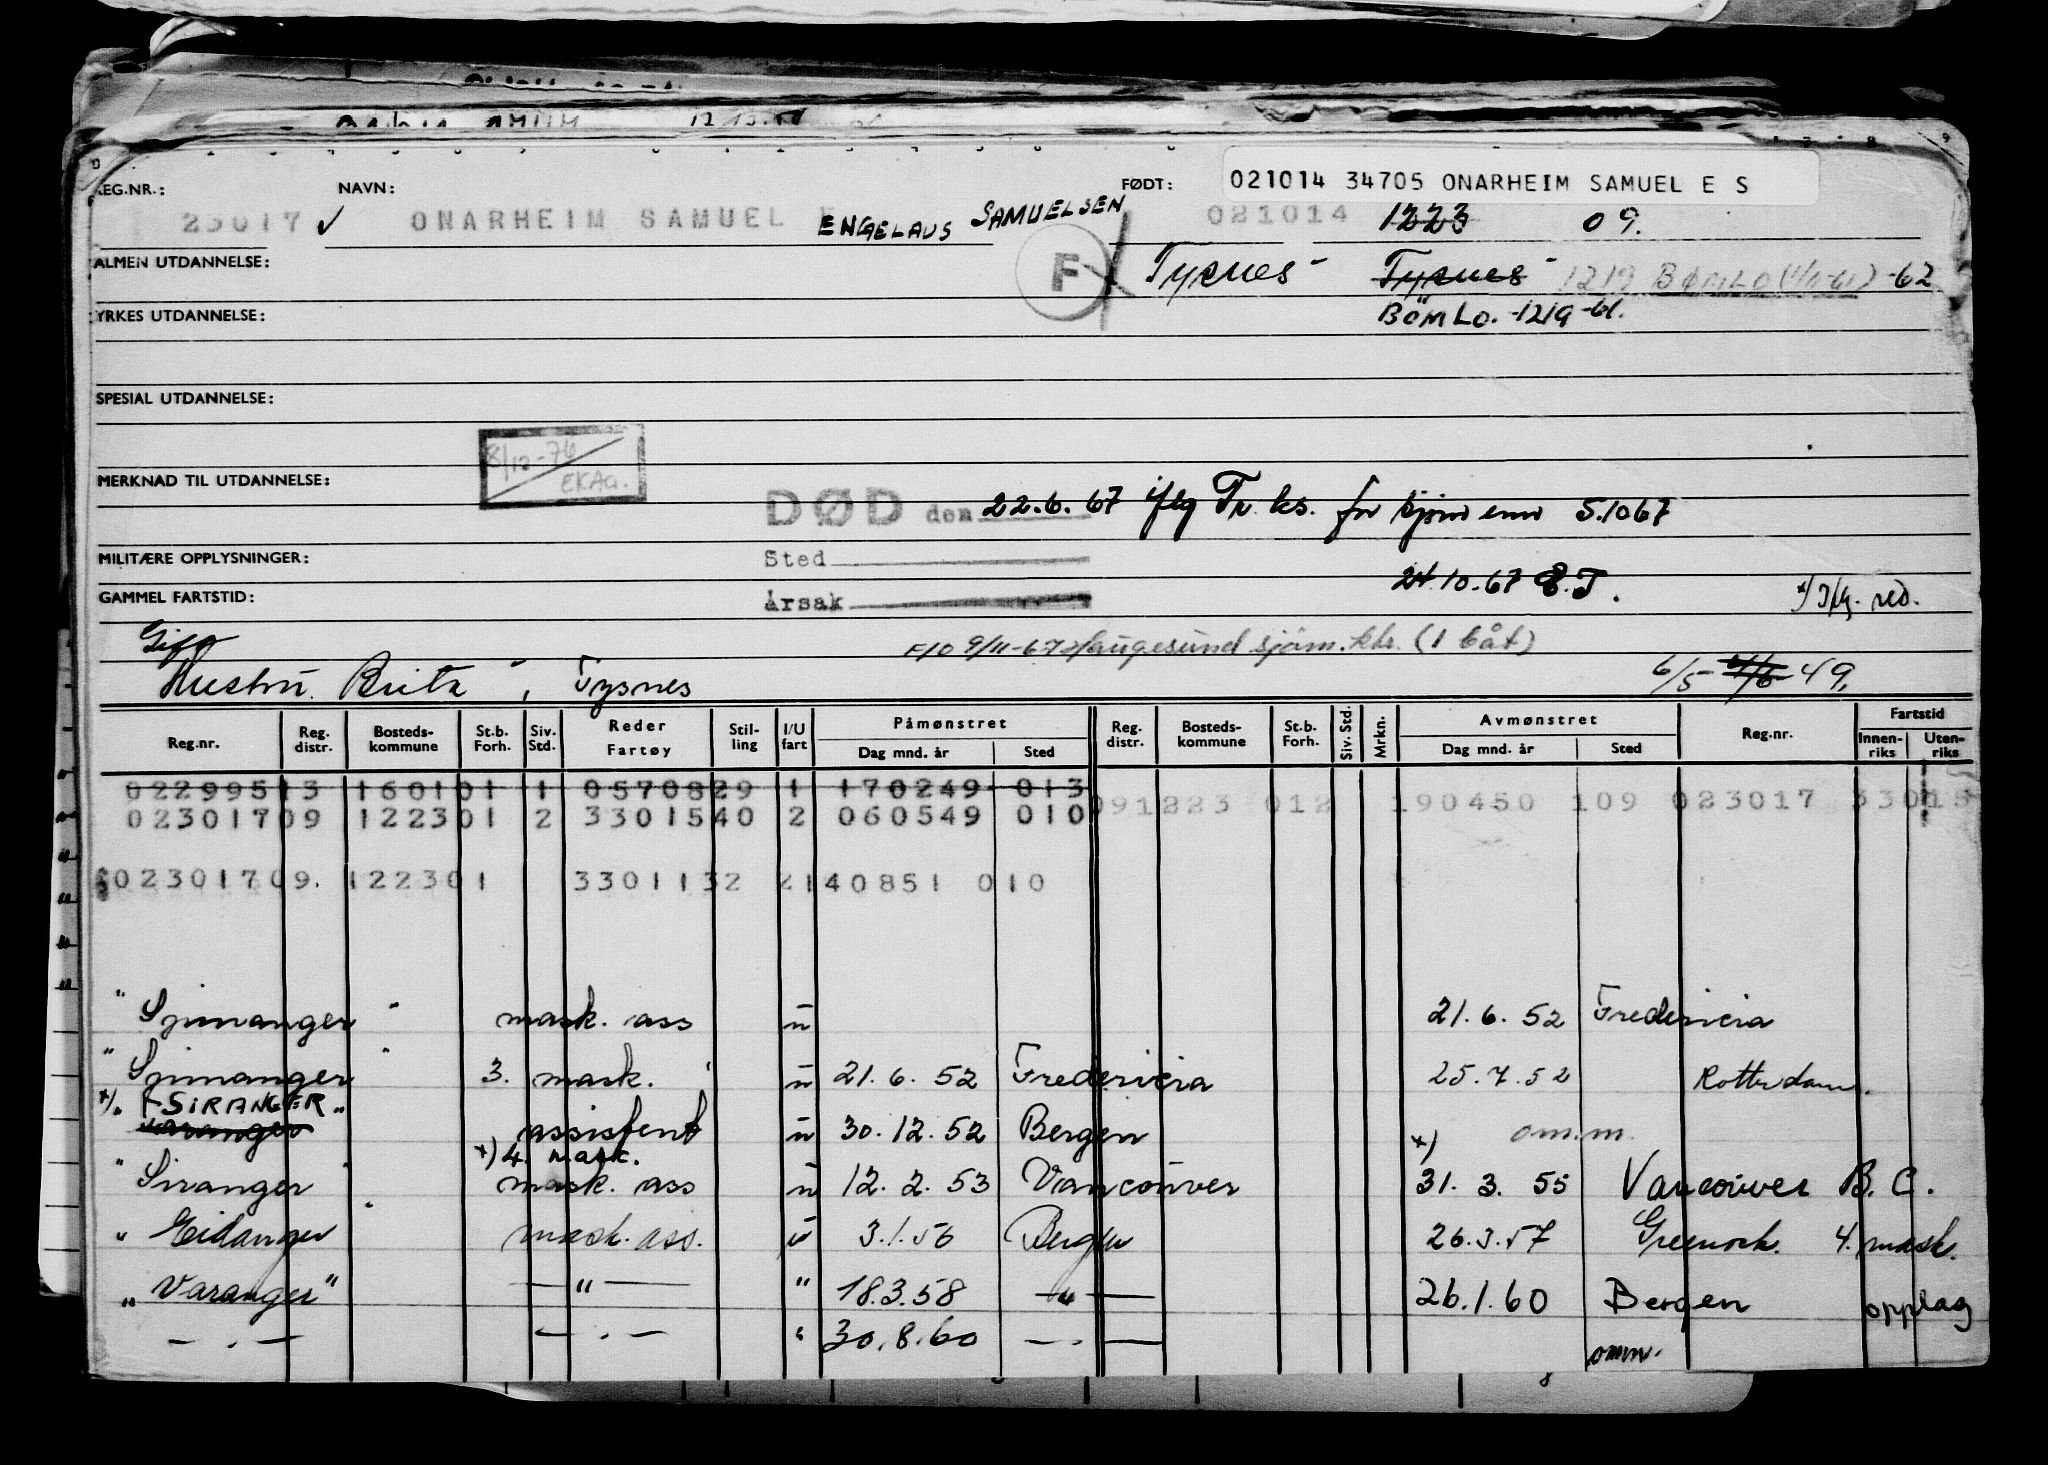 REG.NR.: NAVN: FØDT: 021014 34705 ONARHEIM SAMUEL E S
23017 ✓ ONARHEIM SAMUEL E ENGELAUS SAMUELSEN 021014 1223 09.
ALMEN UTDANNELSE: F Tysnes Tysnes 1219 BØMLO -62
YRKES UTDANNELSE: BÖMLO. -1219 -61.
SPESIAL UTDANNELSE:
8/12-76
EKAa.
MERKNAD TIL UTDANNELSE:
DØD den 22.6.67 iflg Tr. ks. for sjömenn 5.1067
MILITÆRE OPPLYSNINGER: Sted
24.10.67 E.T.
GAMMEL FARTSTID: Årsak x) Iflg. red.
Gift F10 9/11-67 Haugesund sjöm.ktr. (1 båt)
Hustru Brita, Tysnes 6/5 4/6 49.
Reg.nr. Reg. distr. Bosteds-kommune St.b. Forh. Siv. Std. Reder Fartøy Stil-ling I/U fart Påmønstret Dag mnd. år Sted Reg. distr. Bosteds-kommune St.b. Forh. Siv. Std. Mrkn. Avmønstret Dag mnd. år Sted Reg.nr. Fartstid Innen-riks Uten-riks
02299513 160101 1 0570829 1 170249 013
02301709 122301 2 3301540 2 060549 010 091223 012 190450 109 023017 33015
02301709. 122301 3301132 2 140851 010
" Spinanger " mask. ass u 21.6.52 Fredericia
" Spinanger " 3. mask. u 21.6.52 Fredericia 25.7.52 Rotterdam.
x) "SIRANGER"
Varanger assistent u 30.12.52 Bergen x) om.m.
x) 4. mask.
" Siranger " mask. ass u 12.2.53 Vancouver 31.3.55 Vancouver B.C.
" Eidanger mask. ass. u 3.1.56 Bergen 26.3.57 Greenock. 4. mask.
" Varanger" — " — " 18.3.58 — " — 26.1.60 Bergen opplag
— . — — . — " 30.8.60 — . — omm.